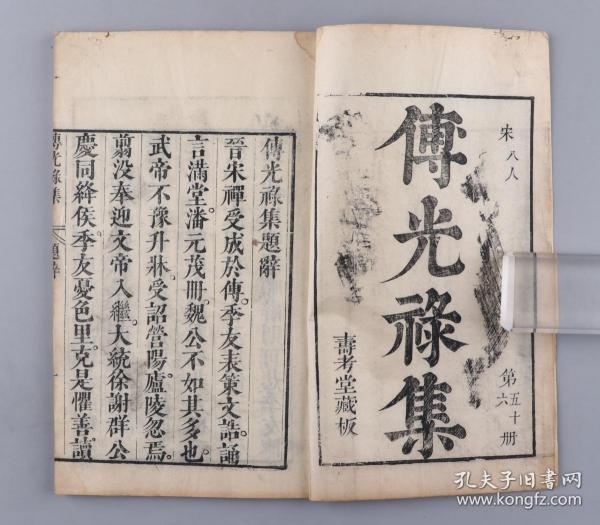 宋八人
傅光祿集
第五十六册
壽考堂藏板
傅光祿集題辭
晉宋禪受成於傅季友表策文誥誦
言滿堂潘元茂冊魏公不如其多也
武帝不豫升牀受詔營陽廬陵忽焉
翦没奉迎文帝入繼大統徐謝群公
慶同絳侯季友憂色里克是懼善讀
傅光祿集
題辭
一
孔夫子旧书网
www.kongfz.com